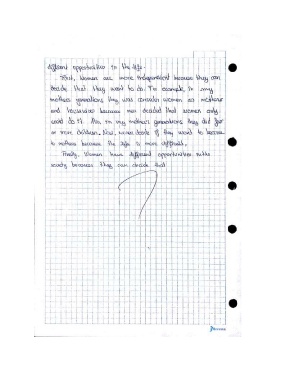 different opportunities in the life.
First, Women are more independent because they can
decide that they want to do. For example, in my
mothers generations they was consider women as mothers
and housewives because men decided that women only
could do it. Also, in my mother's generations they did four
or more children. Now, women decide if they want to become
to mothers because the life is more difficult.
Finally, Women have different opportunities in the
society because they can decide that